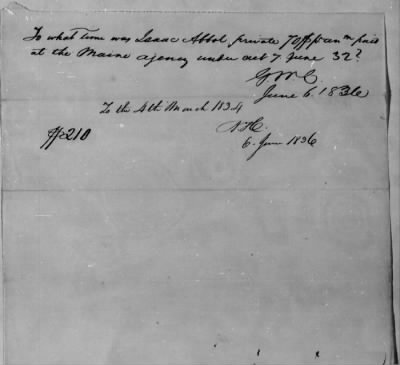 To what time was Isaac Abbot, private, pr an m paid
at the Maine agency under act 7 June 32?
June 6 1836
To the 4th March 1834
210
6. June 1836